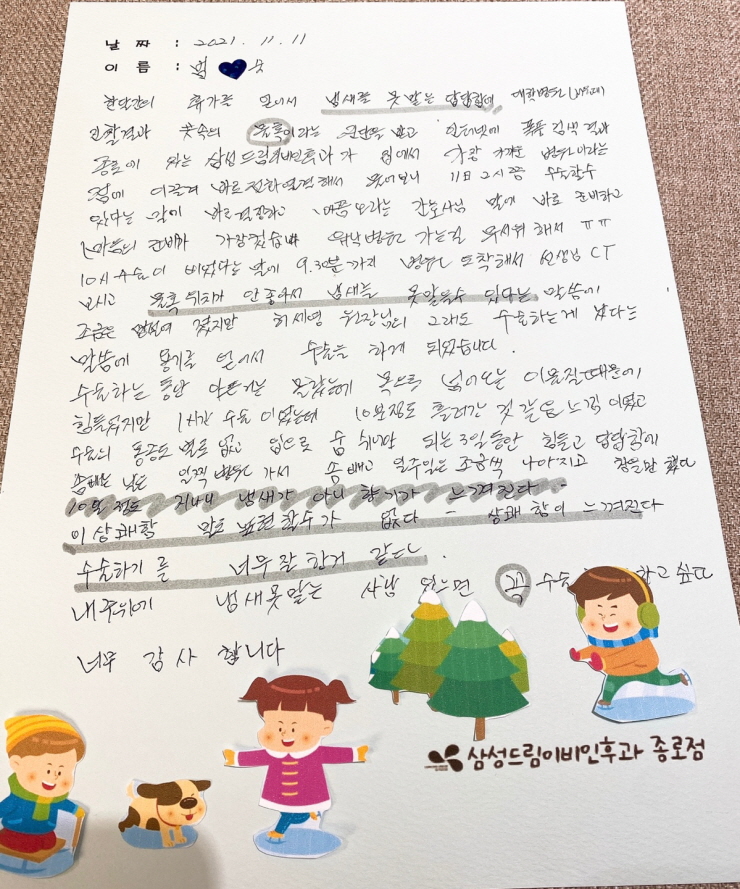 날 짜 : 2021. 11. 11
이 름 :
한달간의 휴가를 얻어서 냄새를 못 맡는 답답함에 대학병원
진찰결과 콧속의 물혹이라는 진단을 받고 인터넷에 폭풍 검색 결과
종로에 있는 삼성드림이비인후과가 집에서 가장 가까운 병원이라는
점에 이끌려 바로 전화연결해서 물어보니 11일 2시쯤 수술할수
있다는 말에 바로 결정하고 내몸 오라는 간호사님 말에 바로 준비하고
마음의 준비가 가장 컸습니다 워낙 병원 가는걸 무서워 해서 ㅠㅠ
10시 수술이 비었다는 말에 9.30분까지 병원 도착해서 선생님 CT
보시고 물혹 위치가 안 좋아서 냄새를 못맡을수 있다는 말씀에
조금은 졌지만 허세영 원장님의 그래도 수술하는게 낫다는
말씀에 용기를 얻어서 수술을 하게 되었습니다.
수술하는 동안 아픈거는 몰랐는데 목으로 넘어오는 이물질 때문에
힘들었지만 1시간 수술이었는데 10분정도 흘러간 것 같은 느낌이었고
수술의 통증도 별로 없고 입으로 숨 쉬기만 되는 3일 동안 힘들고 답답함에
솜빼는 날은 일찍 병원 가서 솜 빼고 일주일은 조금씩 나아지고 힘들만 했다
10일 정도 지나니 냄새가 아니 향기가 느껴진다 -
이 상쾌함 말로 표현할수가 없다 - 상쾌함이 느껴진다
수술하기를 너무 잘 한거 같다.
내 주위에 냄새 못 맡는 사람 있으면 꼭 수술 하고 싶다
너무 감사 합니다
삼성드림이비인후과 종로점